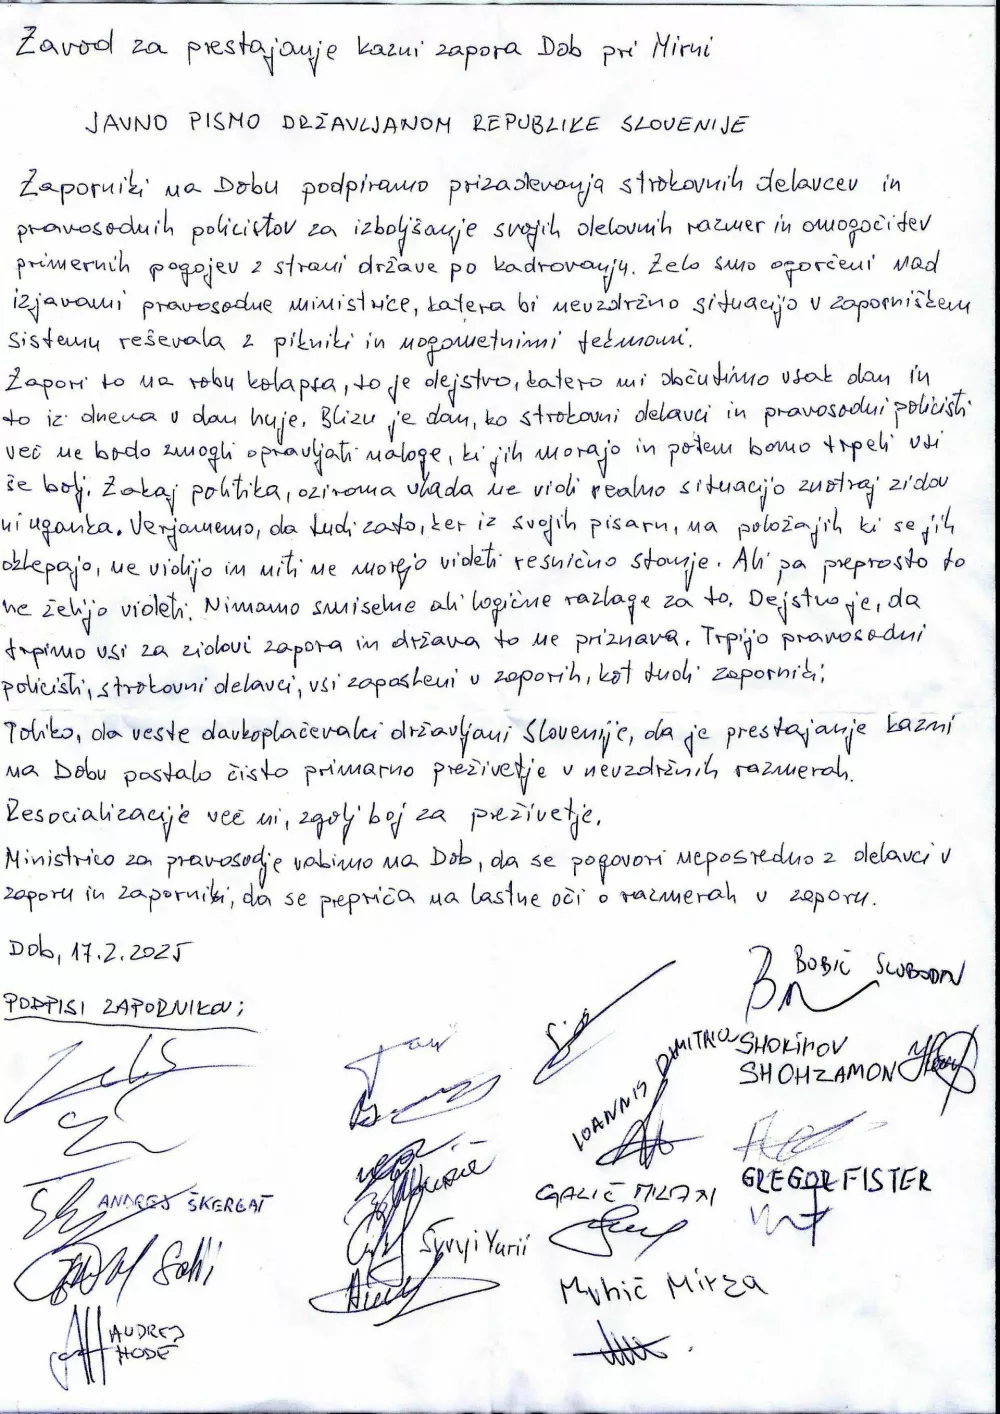 Zavod za prestajanje kazni zapora Dob pri Mirni
JAVNO PISMO DRŽAVLJANOM REPUBLIKE SLOVENIJE
Zaporniki na Dobu podpiramo prizadevanja strokovnih delavcev in
pravosodnih policistov za izboljšanje svojih delovnih razmer in omogočitev
primernih pogojev z strani države po kadrovanju. Zelo smo ogorčeni nad
izjavami pravosodne ministrice, katera bi nevzdržno situacijo v zaporniškem
sistemu reševala z pikniki in nogometnimi tekmami.
Zapori so na robu kolapsa, to je dejstvo, katero mi občutimo vsak dan in
to iz dneva v dan huje. Blizu je dan, ko strokovni delavci in pravosodni policisti
več ne bodo zmogli opravljati naloge, ki jih morajo in potem bomo trpeli vsi
še bolj. Zakaj politika, oziroma vlada ne vidi realno situacijo znotraj zidov
ni uganka. Verjamemo, da tudi zato, ker iz svojih pisarn, na položajih ki se jih
oklepajo, ne vidijo in niti ne morejo videti resnično stanje. Ali pa preprosto to
ne želijo videti. Nimamo smiselne ali logične razlage za to. Dejstvo je, da
trpimo vsi za zidovi zapora in država to ne priznava. Trpijo pravosodni
policisti, strokovni delavci, vsi zaposleni v zaporih, kot tudi zaporniki;
Toliko, da veste davkoplačevalci državljani Slovenije, da je prestajanje kazni
na Dobu postalo čisto primarno preživetje v nevzdržnih razmerah.
Resocializacije več ni, zgolj boj za preživetje.
Ministrico za pravosodje vabimo na Dob, da se pogovori neposredno z delavci v
zaporu in zaporniki, da se prepriča na lastne oči o razmerah v zaporu.
Dob, 17.2.2025
PODPISI ZAPORNIKOV;
BOBIČ SLOBODAN
SHOKIROV
SHOHZAMON
IOANNIS DIMITRIO
GREGOR FISTER
ANDREJ ŠKERGAT
GALIČ MILAN
Syvyi Yurii
Muhič Mirza
ANDREJ
HODE